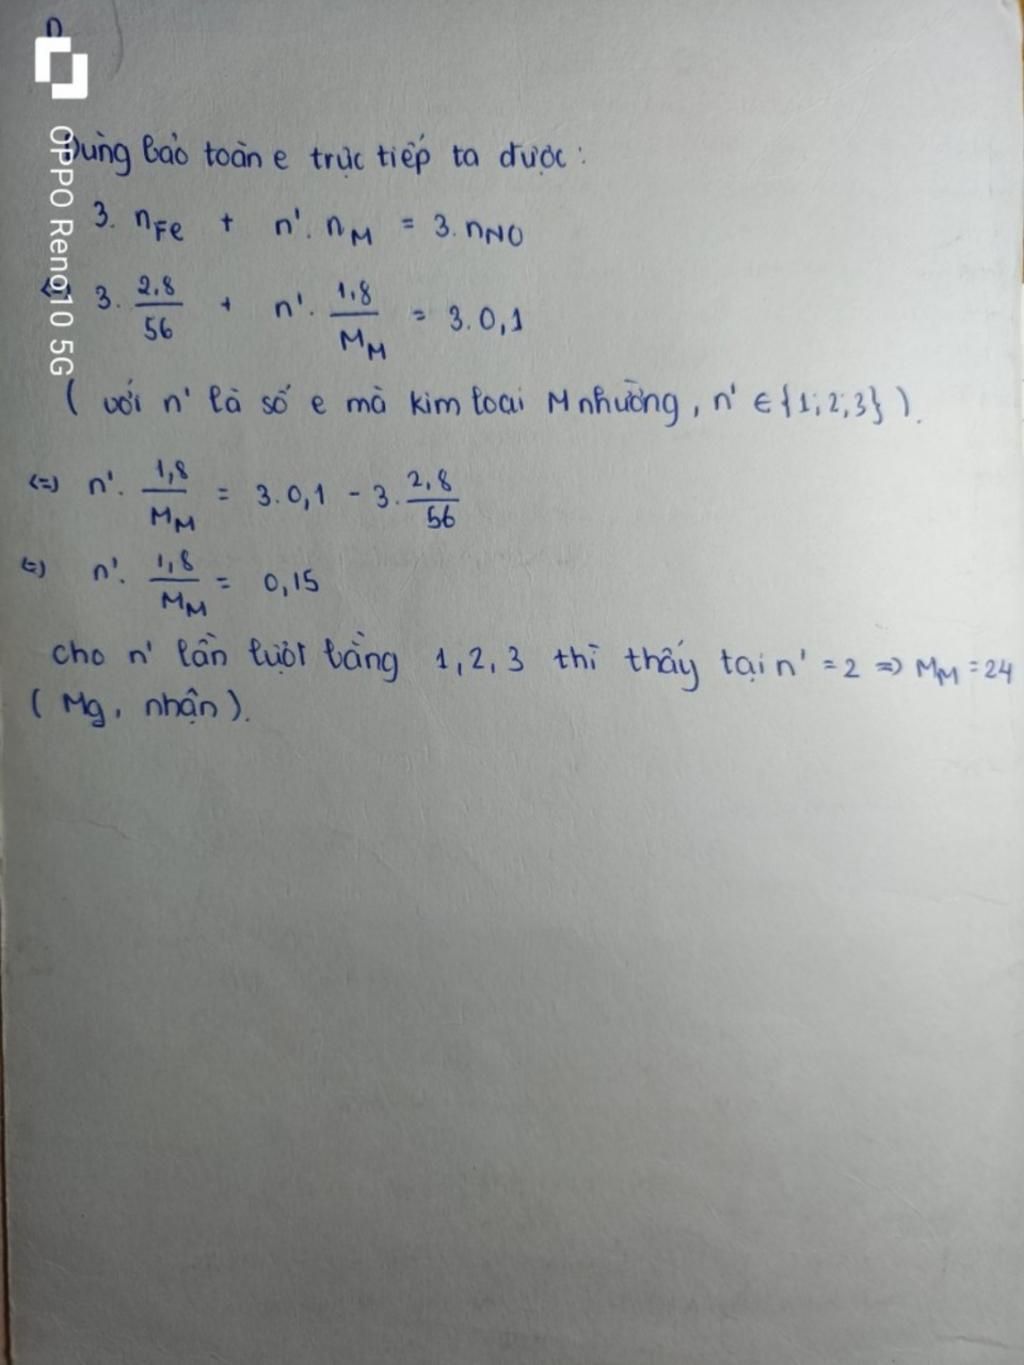 n
Dùng bảo toàn e trực tiếp ta được:
3. nFe + n'. nM = 3. nNO
<=> 3. 2,8/56 + n'. 1,8/MM = 3.0,1
( với n' là số e mà kim loại M nhường, n' ∈ {1;2;3} ).
<=> n'. 1,8/MM = 3.0,1 - 3. 2,8/56
<=> n'. 1,8/MM = 0,15
cho n' lần lượt bằng 1, 2, 3 thì thấy tại n' = 2 => MM = 24
( Mg, nhận ).
OPPO Reno10 5G